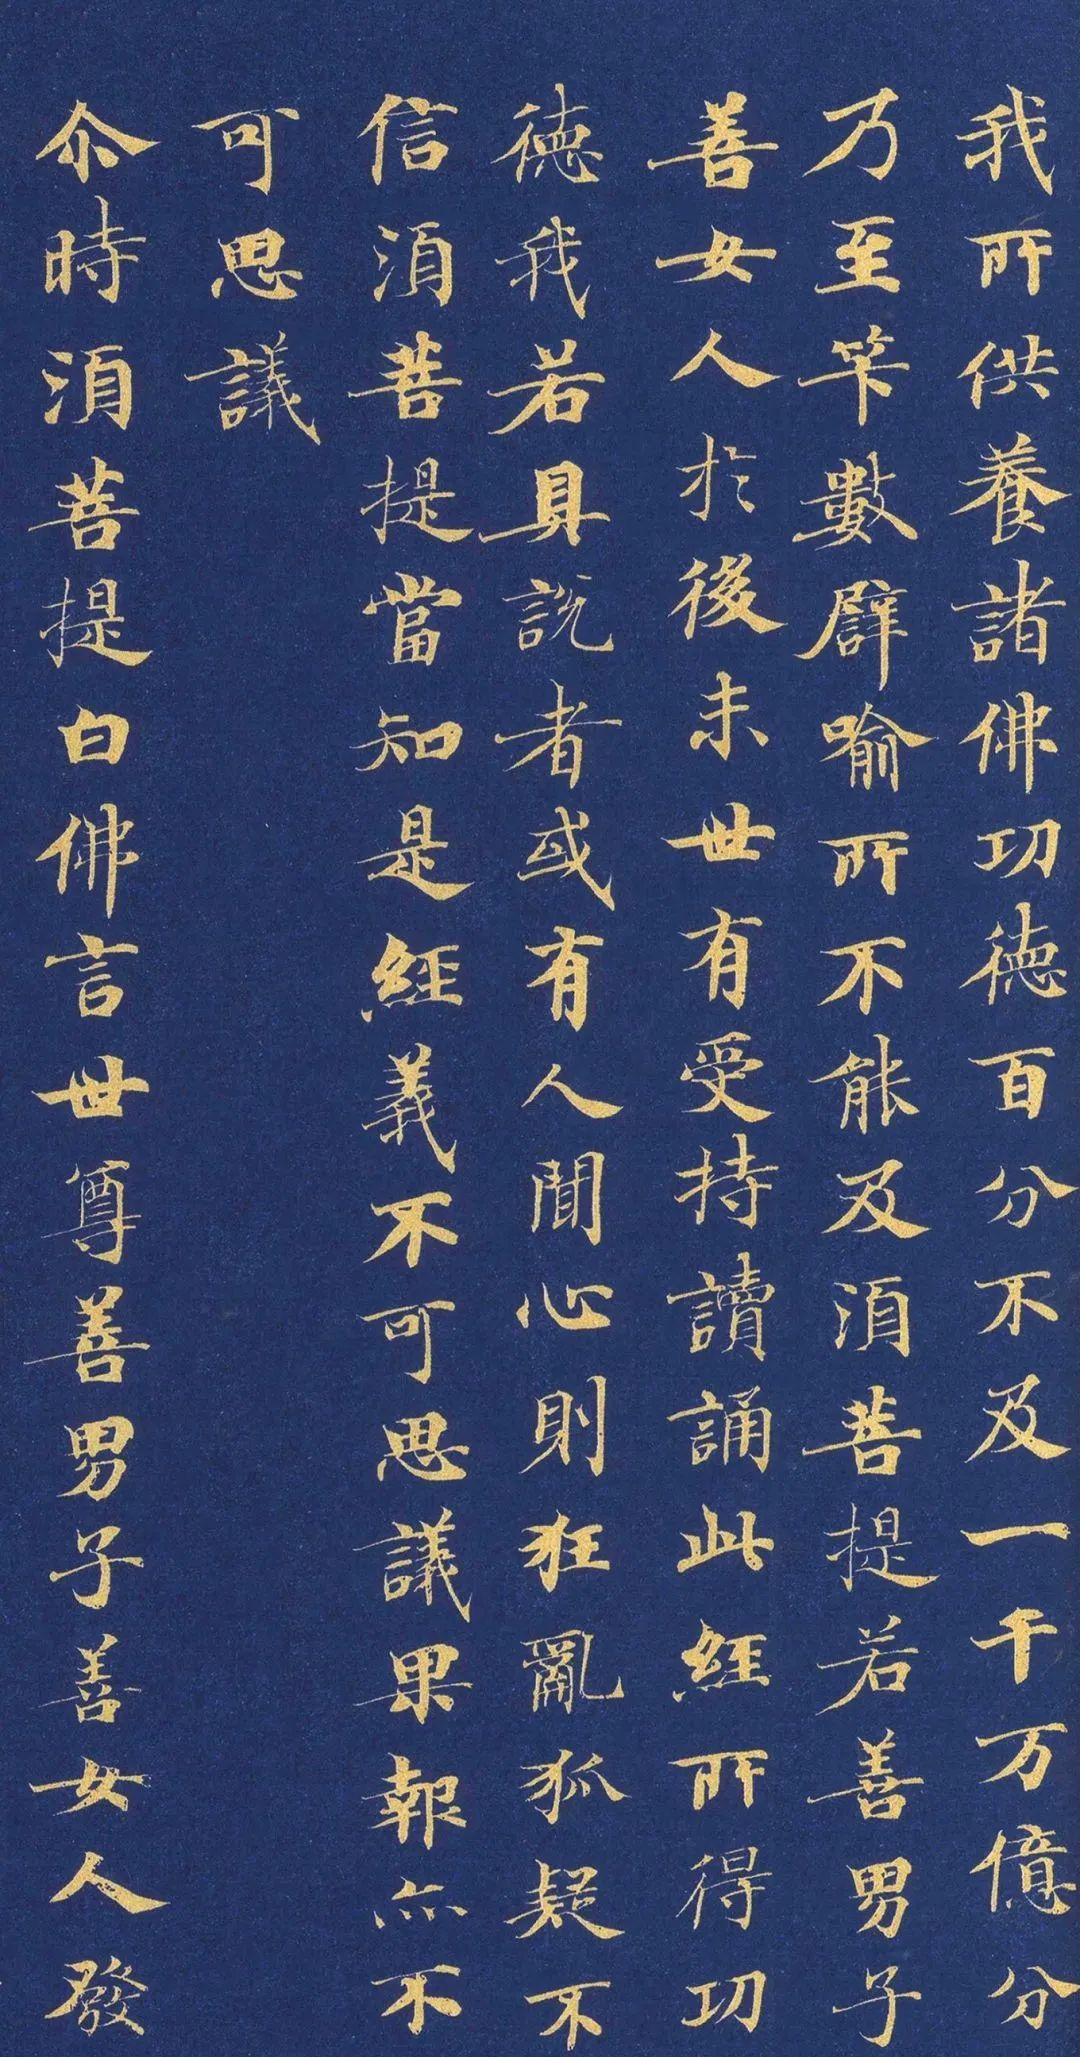 我所供養諸佛功德百分不及一千万億分
乃至筭數譬喻所不能及須菩提若善男子
善女人於後末世有受持讀誦此經所得功
德我若具說者或有人聞心則狂亂狐疑不
信須菩提當知是經義不可思議果報亦不
可思議
尒時須菩提白佛言世尊善男子善女人發